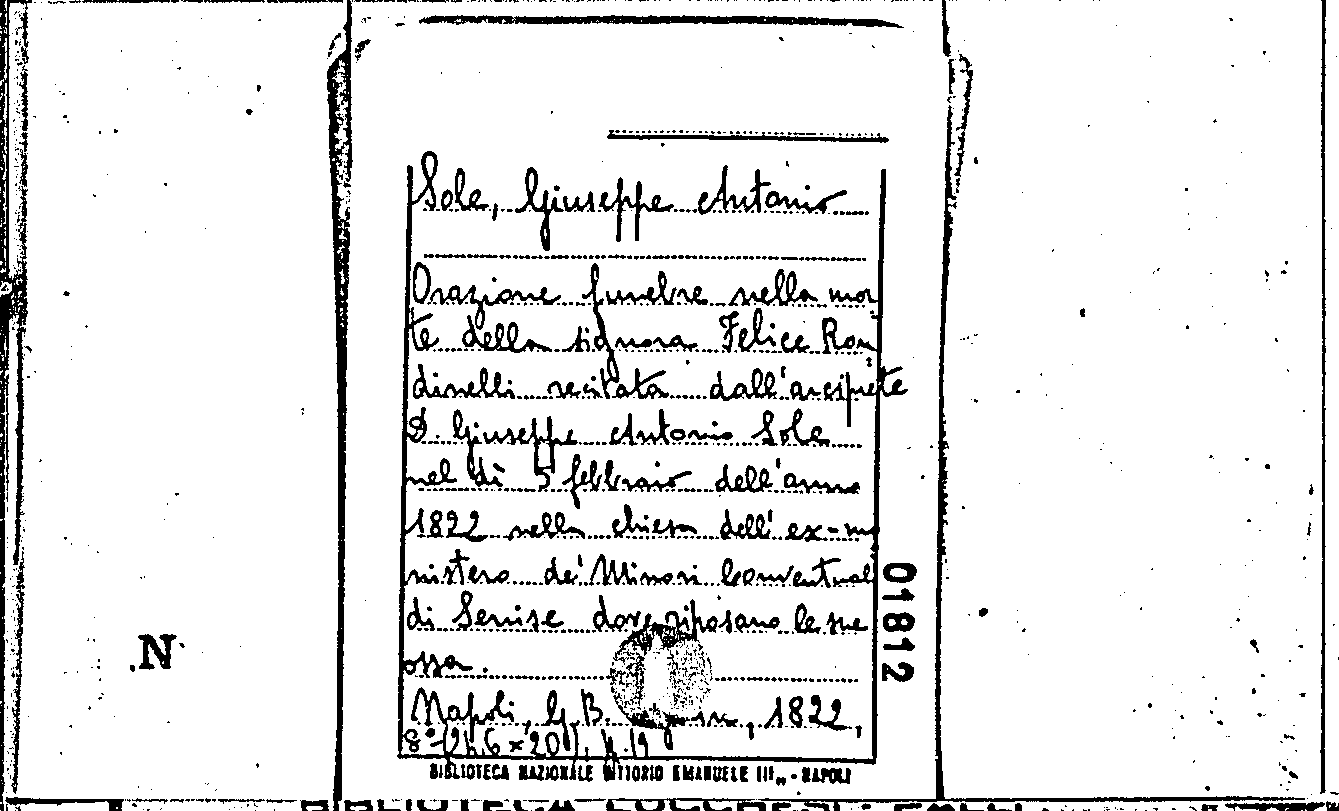 Sole, Giuseppe Antonio
Orazione funebre nella mor
te della signora Felice Ron
dinelli recitata dall'arciprete
D. Giuseppe Antonio Sole
nel dì 5 febbraio dell'anno
1822 nella chiesa dell'ex-mo
nistero de' Minori Conventuali
di Senise dove riposano le sue
ossa.
Napoli, G.B. 1822,
8° p. 19
BIBLIOTECA NAZIONALE VITTORIO EMANUELE III,, - NAPOLI
01812
N
BIBLIOTECA